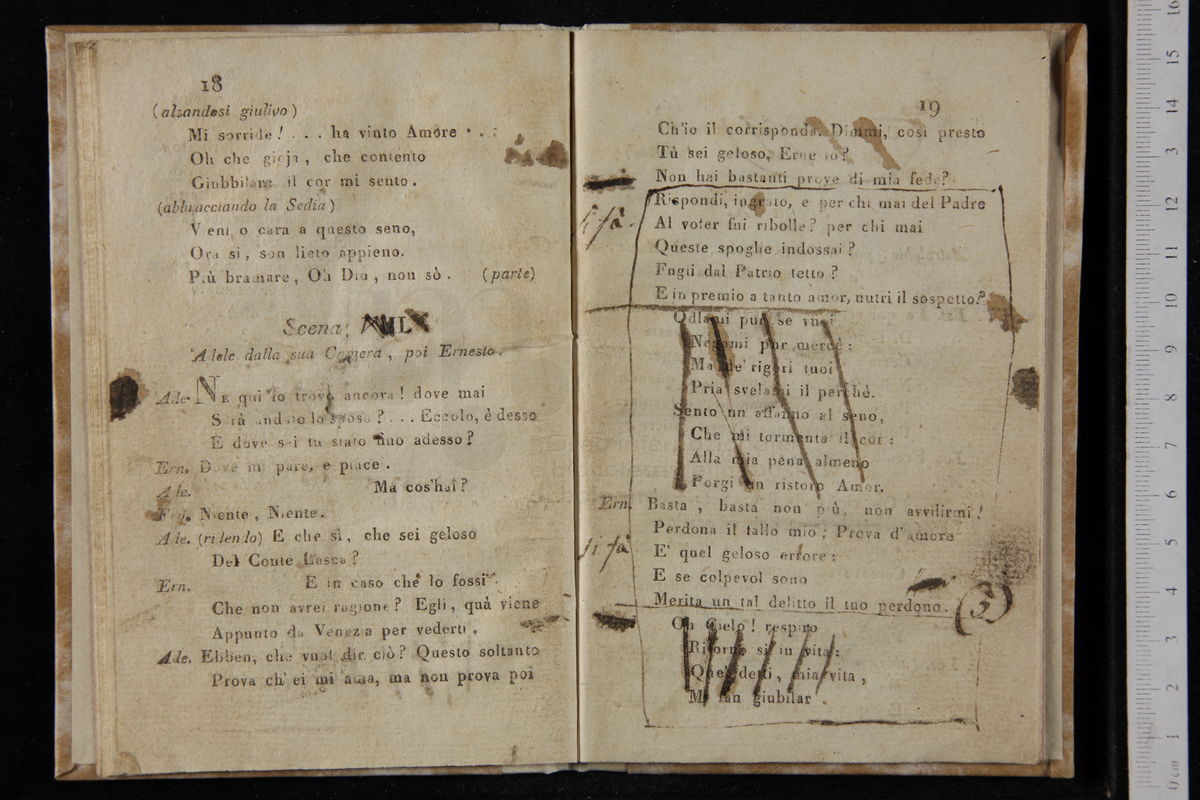 18
(alzandosi giulivo)
Mi sorride! . . . ha vinto Amore . . :
Oh che gioja, che contento
Giubbilare il cor mi sento.
(abbracciando la Sedia)
Veni o cara a questo seno,
Ora si, son lieto appieno.
Più bramare, Oh Dio, non sò. (parte)
Scena
Adele dalla sua Camera, poi Ernesto.
Ade. NE qui lo trovo ancora! dove mai
Sarà andato lo sposo? . . . Eccolo, è desso
E dove sei tu stato fino adesso?
Ern. Dove mi pare, e piace.
Ade. Ma cos'hai?
Ern. Niente, Niente.
Ade. (ridendo) E che sì, che sei geloso
Del Conte Lasca?
Ern. E in caso che lo fossi
Che non avrei ragione? Egli, quà viene
Appunto da Venezia per vederti.
Ade. Ebben, che vuol dir ciò? Questo soltanto
Prova ch'ei mi ama, ma non prova poi
19
Ch'io il corrisponda. Dimmi, così presto
Tù sei geloso, Ernesto?
Non hai bastanti prove di mia fede?
Rispondi, ingrato, e per chi mai del Padre
si fà.
Al voler fui ribolle? per chi mai
Queste spoglie indossai?
Fugii dal Patrio tetto?
E in premio a tanto amor, nutri il sospetto?
Odiami pur se vuoi
Negami pur mercè:
Ma de' rigori tuoi
Pria svelami il perchè.
Sento un affanno al seno,
Che mi tormenta il cor:
Alla mia pena almeno
Porgi un ristoro Amor.
Ern. Basta, basta non più, non avvilirmi!
Perdona il fallo mio; Prova d'amore
si fà
E' quel geloso errore:
E se colpevol sono
Merita un tal delitto il tuo perdono.
(5)
Oh Cielo! respiro
Ritorno si in vita:
Que' detti, mia vita,
Mi fan giubilar.